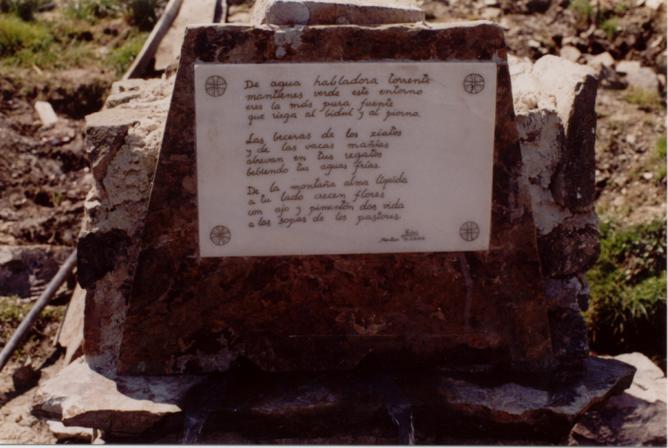 De agua habladora torrente
mantienes verde este entorno
eres la más pura fuente
que riega al bidul y al piorno.
Las beceras de los xiatos
y de las vacas mañias
abrevan en tus regatos
bebiendo tus aguas frías.
De la montaña alma líquida
a tu lado crecen flores
con ajo y pimentón das vida
a las sopas de los pastores.